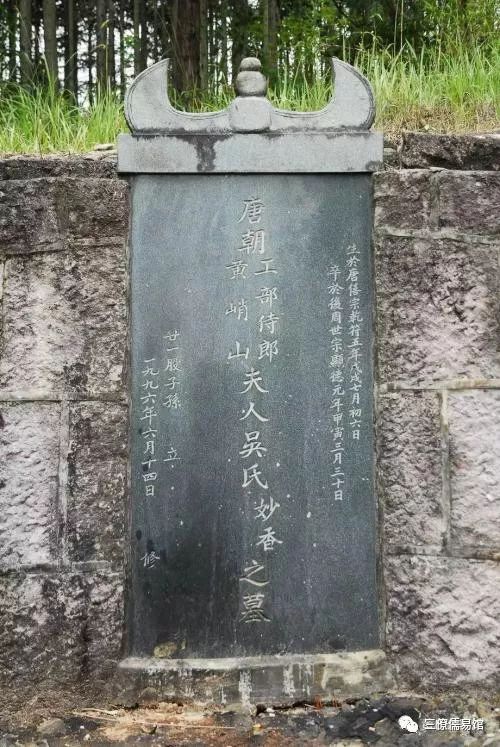 生於唐僖宗乾符五年戊戌七月初六日
卒於後周世宗顯德元年甲寅三月三十日
唐朝工部侍郎
黃峭山
夫人吳氏妙香之墓
廿一股子孫 立
一九九六年六月十四日 修
三僚儒易馆